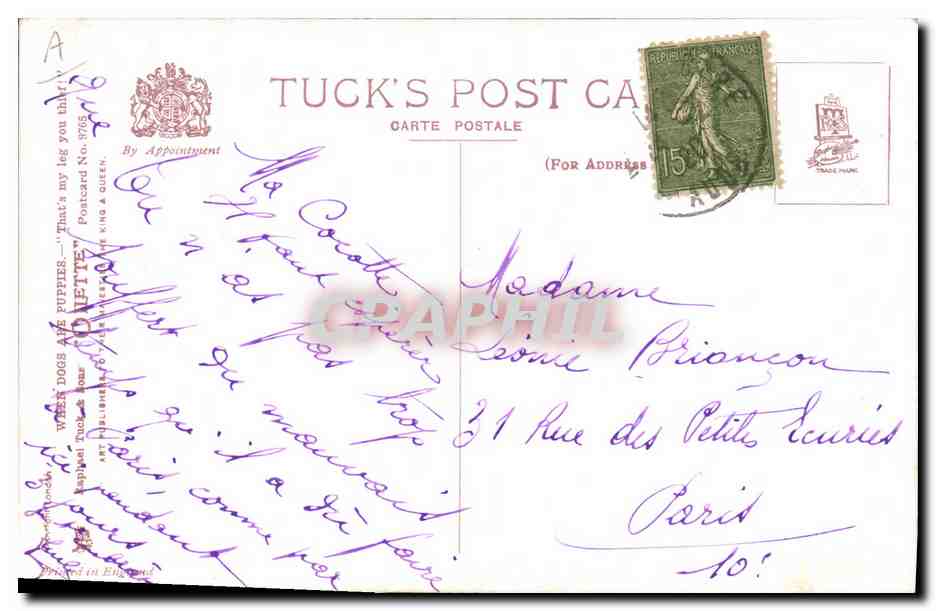 A
TUCK'S POST CA
CARTE POSTALE
By Appointment
(FOR ADDRESS
REPUBLIQUE FRANÇAISE
15
TRADE MARK
WHEN DOGS ARE PUPPIES.—"That's my leg you thief!"
Raphael Tuck & Sons' "OILETTE" Postcard No. 9765
ART PUBLISHERS TO THEIR MAJESTIES THE KING & QUEEN.
Printed in England
Ma Cocotte
Il faut
que tu n'as pas trop
souffert du mauvais
temps qu'il a dû faire
à Paris, comme par
ici pendant
jours
Madame
Léonie Briançon
31 Rue des Petites Écuries
Paris
10!
CPAPHIL